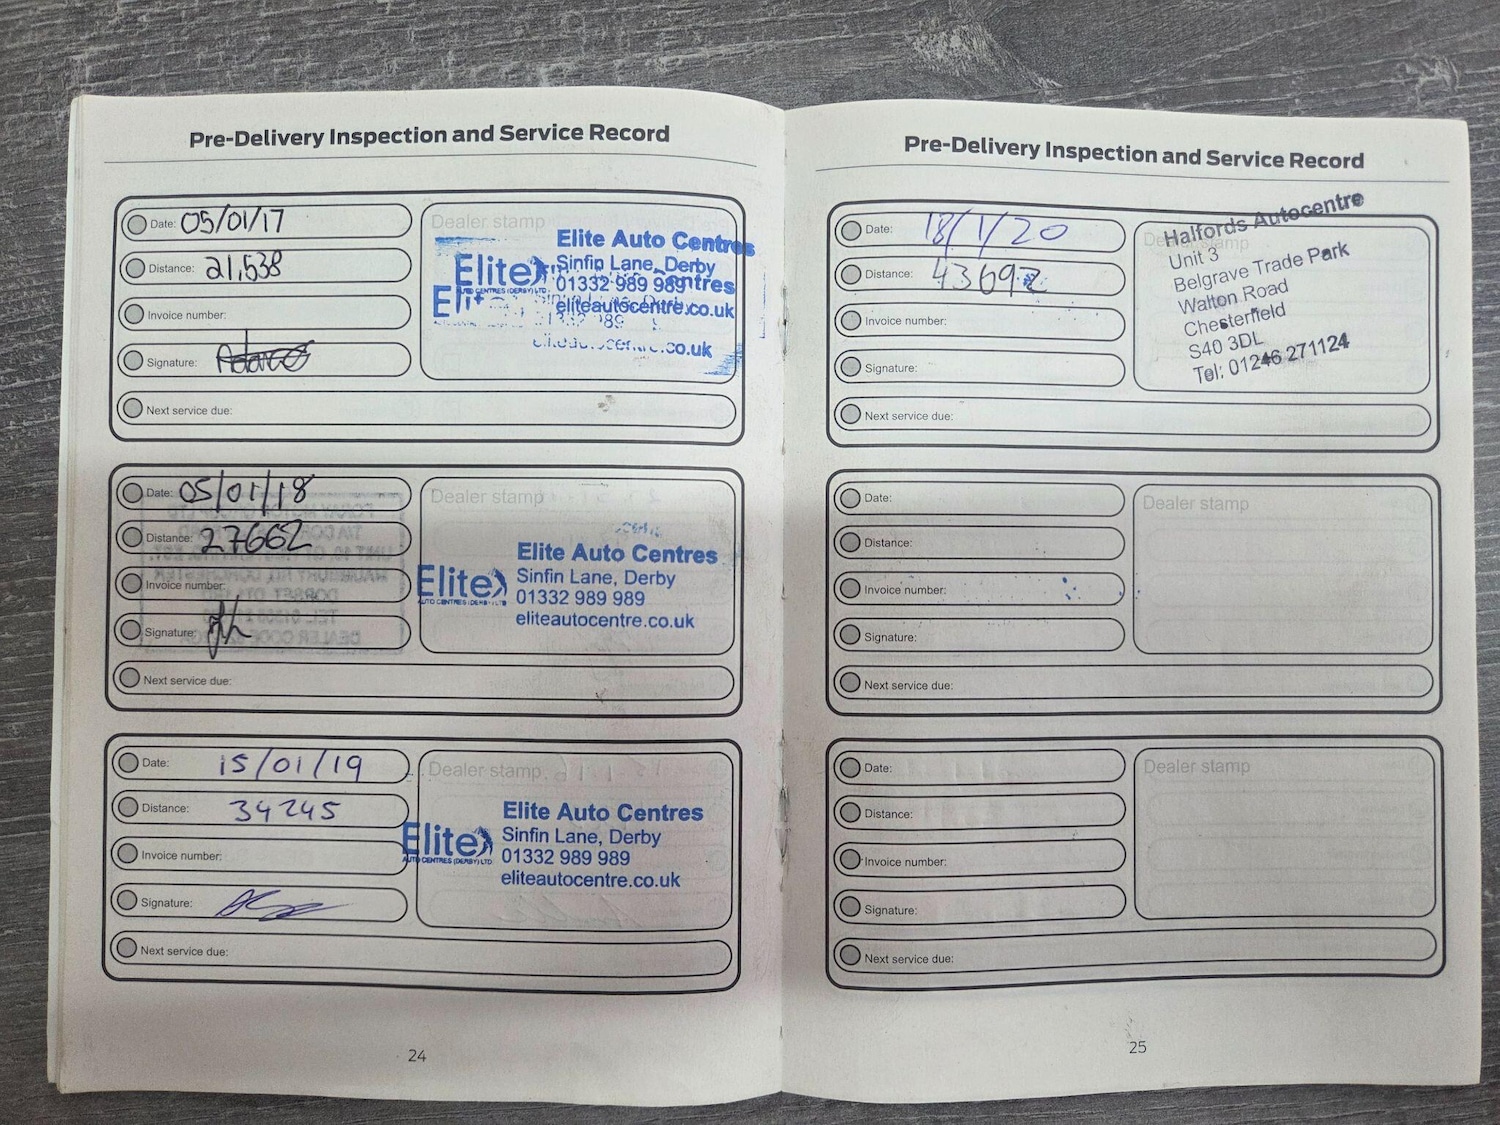 Pre-Delivery Inspection and Service Record
Date: 05/01/17
Distance: 21,538
Invoice number:
Signature:
Next service due:
Dealer stamp
Elite Auto Centres
Elite Sinfin Lane, Derby
AUTO CENTRES (DERBY) LTD. 01332 989 989
eliteautocentre.co.uk
Date: 05/01/18
Distance: 27662
Invoice number:
Signature:
Next service due:
Dealer stamp
Elite Auto Centres
Elite Sinfin Lane, Derby
AUTO CENTRES (DERBY) LTD 01332 989 989
eliteautocentre.co.uk
Date: 15/01/19
Distance: 34245
Invoice number:
Signature:
Next service due:
Dealer stamp
Elite Auto Centres
Elite Sinfin Lane, Derby
AUTO CENTRES (DERBY) LTD 01332 989 989
eliteautocentre.co.uk
24
Pre-Delivery Inspection and Service Record
Date: 18/1/20
Distance: 43692
Invoice number:
Signature:
Next service due:
Dealer stamp
Halfords Autocentre
Unit 3
Belgrave Trade Park
Walton Road
Chesterfield
S40 3DL
Tel: 01246 271124
Date:
Distance:
Invoice number:
Signature:
Next service due:
Dealer stamp
Date:
Distance:
Invoice number:
Signature:
Next service due:
Dealer stamp
25